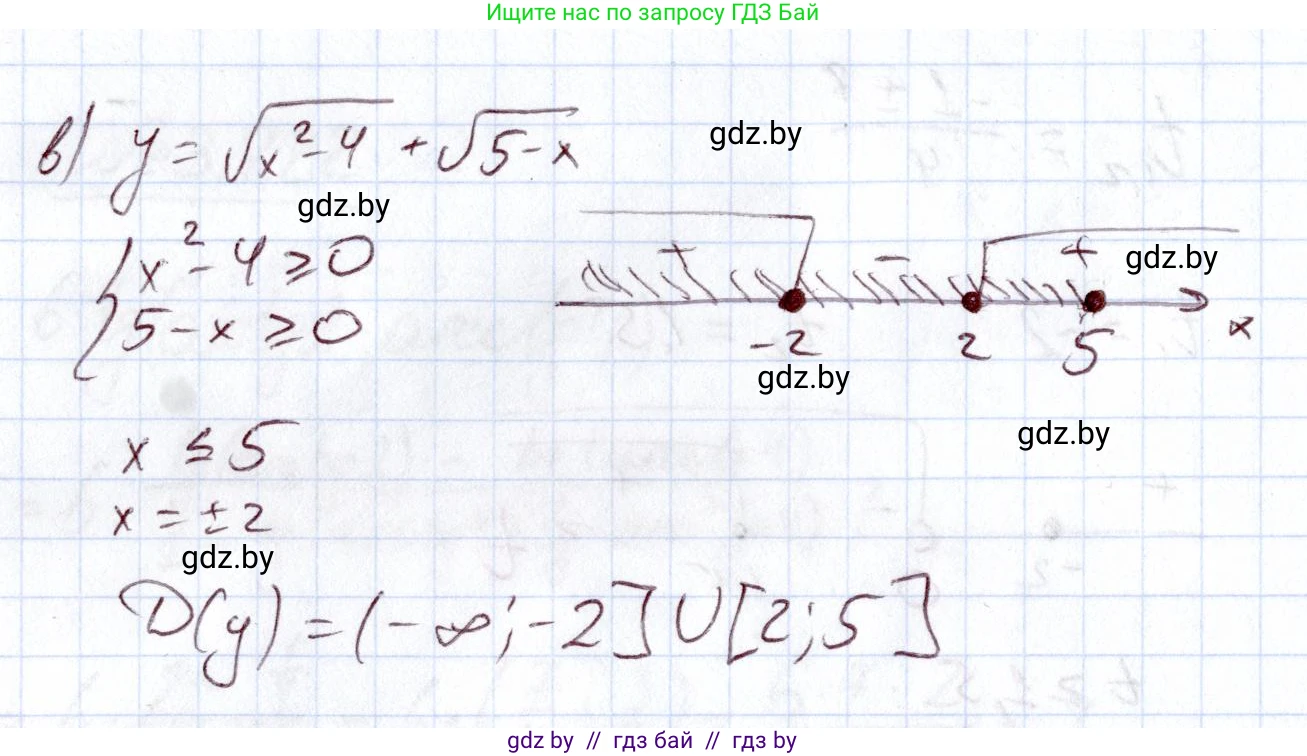 Ищите нас по запросу ГДЗ Бай
в) y = √(x² - 4) + √(5 - x)
gdz.by
gdz.by
{ x² - 4 ≥ 0
5 - x ≥ 0
+ - + gdz.by
-2 2 5 x
gdz.by
x ≤ 5
gdz.by
x = ± 2
gdz.by
D(y) = (-∞; -2] ∪ [2; 5]
gdz.by // гдз бай // гдз by